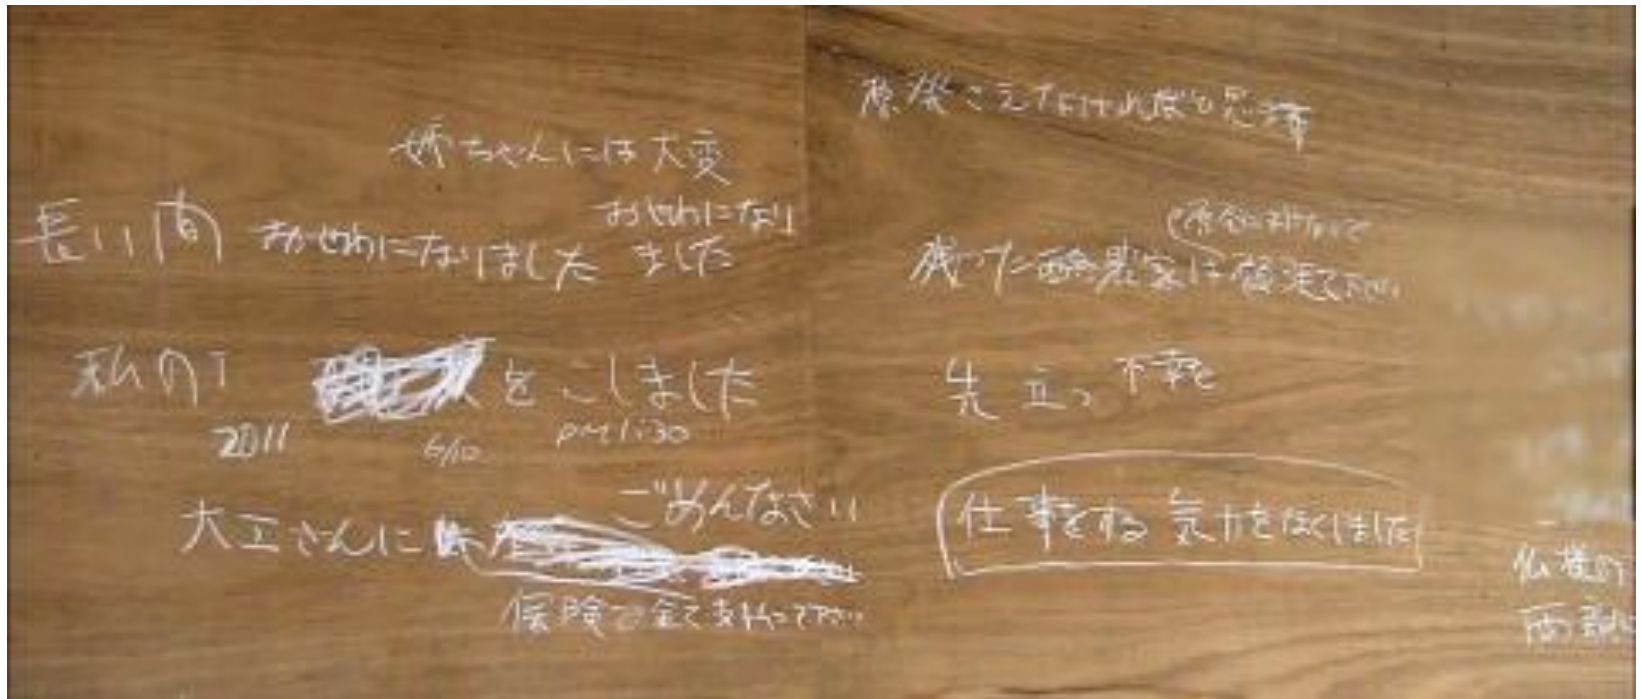 姉ちゃんには大変
おせわになり
ました
長い間 おせわになりました
私の を こしました
2011 6/10 pm1:30
ごめんなさい
大工さんに
保険で全て支払って下さい
原発さえなければと思ます
残った酪農家は原発にまけないで頑張て下さい
先立つ不幸を
仕事をする気力をなくしました
仏様の
両親